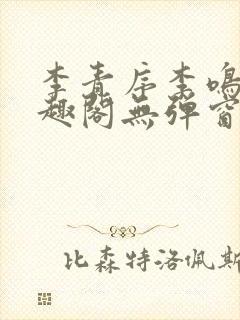 李青岸李鳴
趣閣無彈窗
比森特洛佩斯